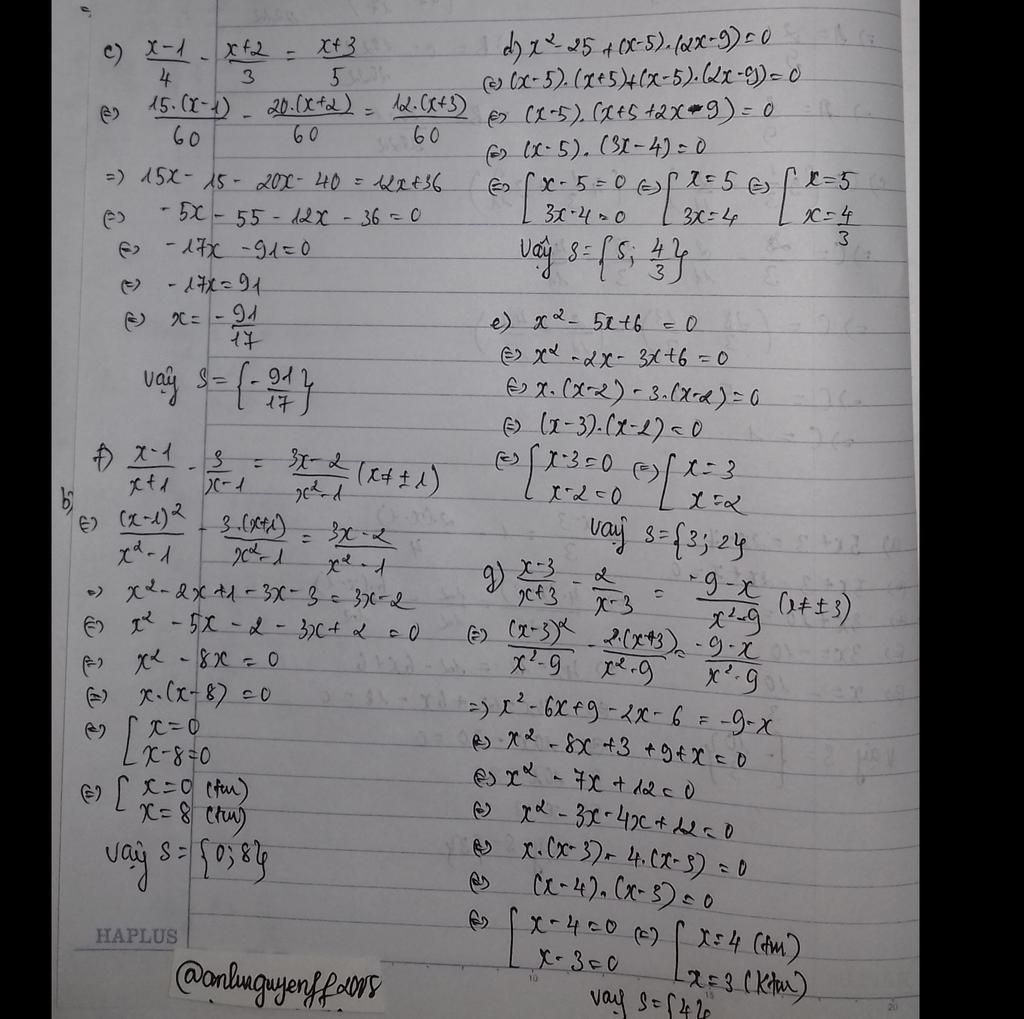 c) (x-1)/4 - (x+2)/3 = (x+3)/5
(=) 15.(x-1)/60 - 20.(x+2)/60 = 12.(x+3)/60
=) 15x - 15 - 20x - 40 = 12x+36
(=) -5x - 55 - 12x - 36 = 0
(=) -17x - 91 = 0
(=) -17x = 91
(=) x = -91/17
vậy S = {-91/17}
f) (x-1)/(x+1) - 3/(x-1) = (3x-2)/(x²-1) (x≠±1)
b)
(=) (x-1)²/(x²-1) - 3.(x+1)/(x²-1) = (3x-2)/(x²-1)
=) x² - 2x + 1 - 3x - 3 = 3x - 2
(=) x² - 5x - 2 - 3x + 2 = 0
(=) x² - 8x = 0
(=) x.(x-8) = 0
(=) [ x=0
x-8=0
(=) [ x=0 (tm)
x=8 (tm)
vậy S = {0;8}
HAPLUS
d) x² - 25 + (x-5).(2x-9) = 0
(=) (x-5).(x+5)+(x-5).(2x-9) = 0
(=) (x-5).(x+5+2x-9) = 0
(=) (x-5).(3x-4) = 0
(=) [ x-5=0 (=) [ x=5 (=) [ x=5
3x-4=0 3x=4 x=4/3
vậy S = {5; 4/3}
e) x² - 5x+6 = 0
(=) x² - 2x - 3x+6 = 0
(=) x.(x-2) - 3.(x-2) = 0
(=) (x-3).(x-2) = 0
(=) [ x-3=0 (=) [ x=3
x-2=0 x=2
vậy S={3;2}
g) (x-3)/(x+3) - 2/(x-3) = (-9-x)/(x²-9) (x≠±3)
(=) (x-3)²/(x²-9) - 2.(x+3)/(x²-9) = (-9-x)/(x²-9)
=) x² - 6x+9 - 2x - 6 = -9-x
(=) x² - 8x + 3 + 9 + x = 0
(=) x² - 7x + 12 = 0
(=) x² - 3x - 4x + 12 = 0
(=) x.(x-3) - 4.(x-3) = 0
(=) (x-4).(x-3) = 0
(=) [ x-4=0 (=) [ x=4 (tm)
x-3=0 x=3 (Ktm)
vậy S={4}